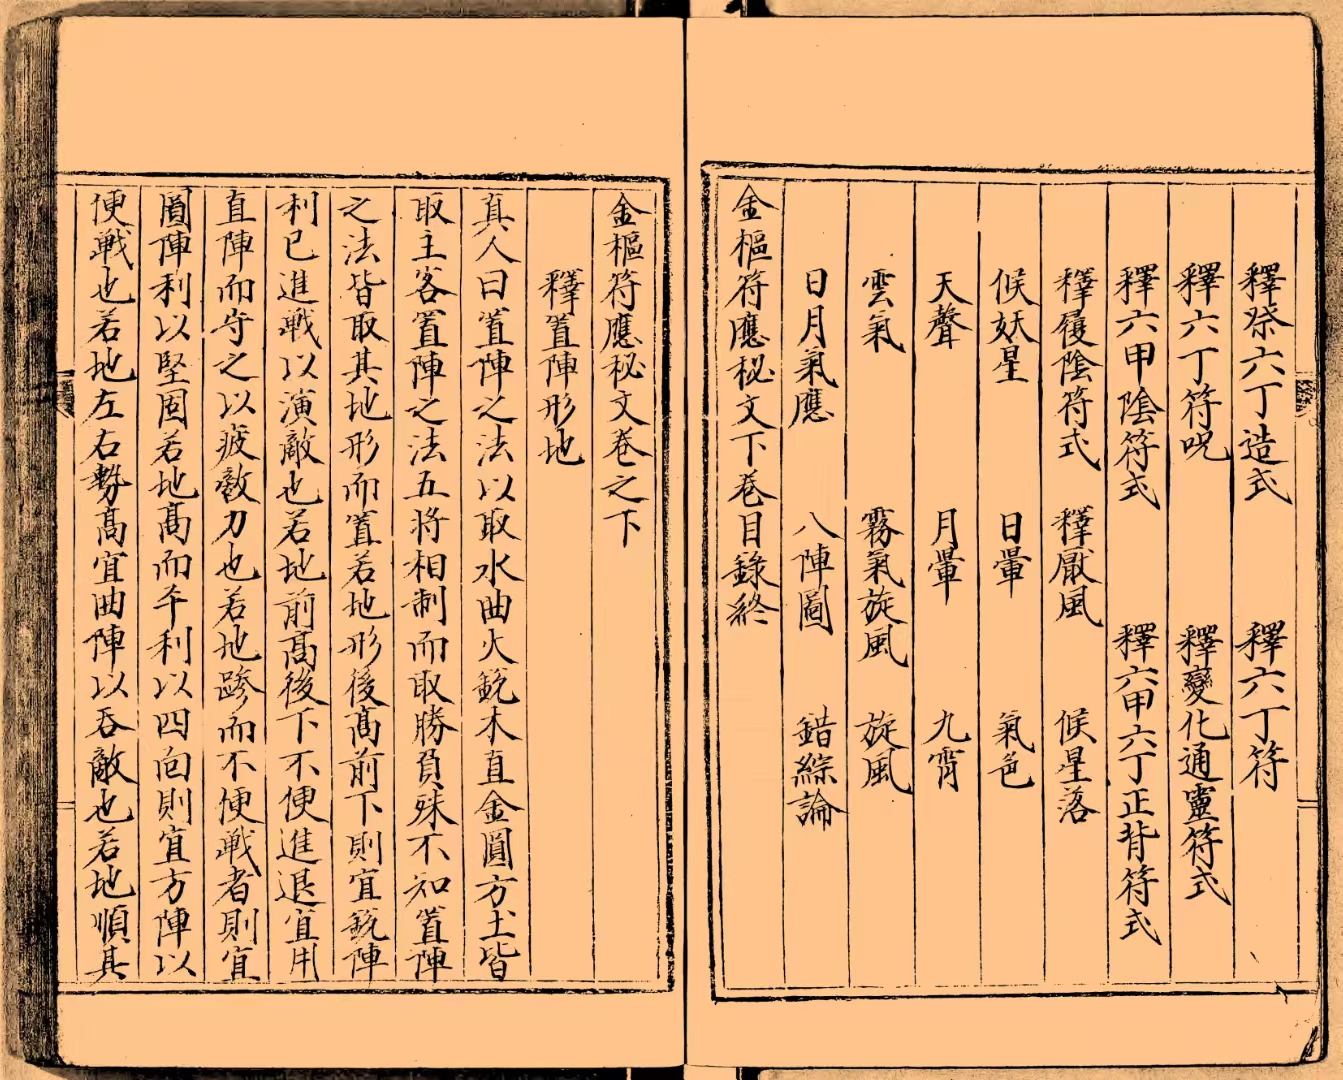 釋祭六丁造式 釋六丁符
釋六丁符呪 釋變化通靈符式
釋六甲陰符式 釋六甲六丁正背符式
釋履陰符式 釋厭風 候星落
候妖星 日暈 氣色
天聲 月暈 九霄
雲氣 霧氣旋風 旋風
日月氣應 八陣圖 錯綜論
金樞符應秘文下卷目錄終
金樞符應秘文卷之下
釋置陣形地
真人曰置陣之法以取水曲火銳木直金圓方土皆
取主客置陣之法五将相制而取勝負殊不知置陣
之法皆取其地形而置若地形後髙前下則宜銳陣
利已進戰以演敵也若地前髙後下不便進退宜用
直陣而守之以疲敵刀也若地跡而不便戦者則宜
圎陣利以堅固若地髙而平利以四向則宜方陣以
便戦也若地左右勢髙宜曲陣以吞敵也若地順其